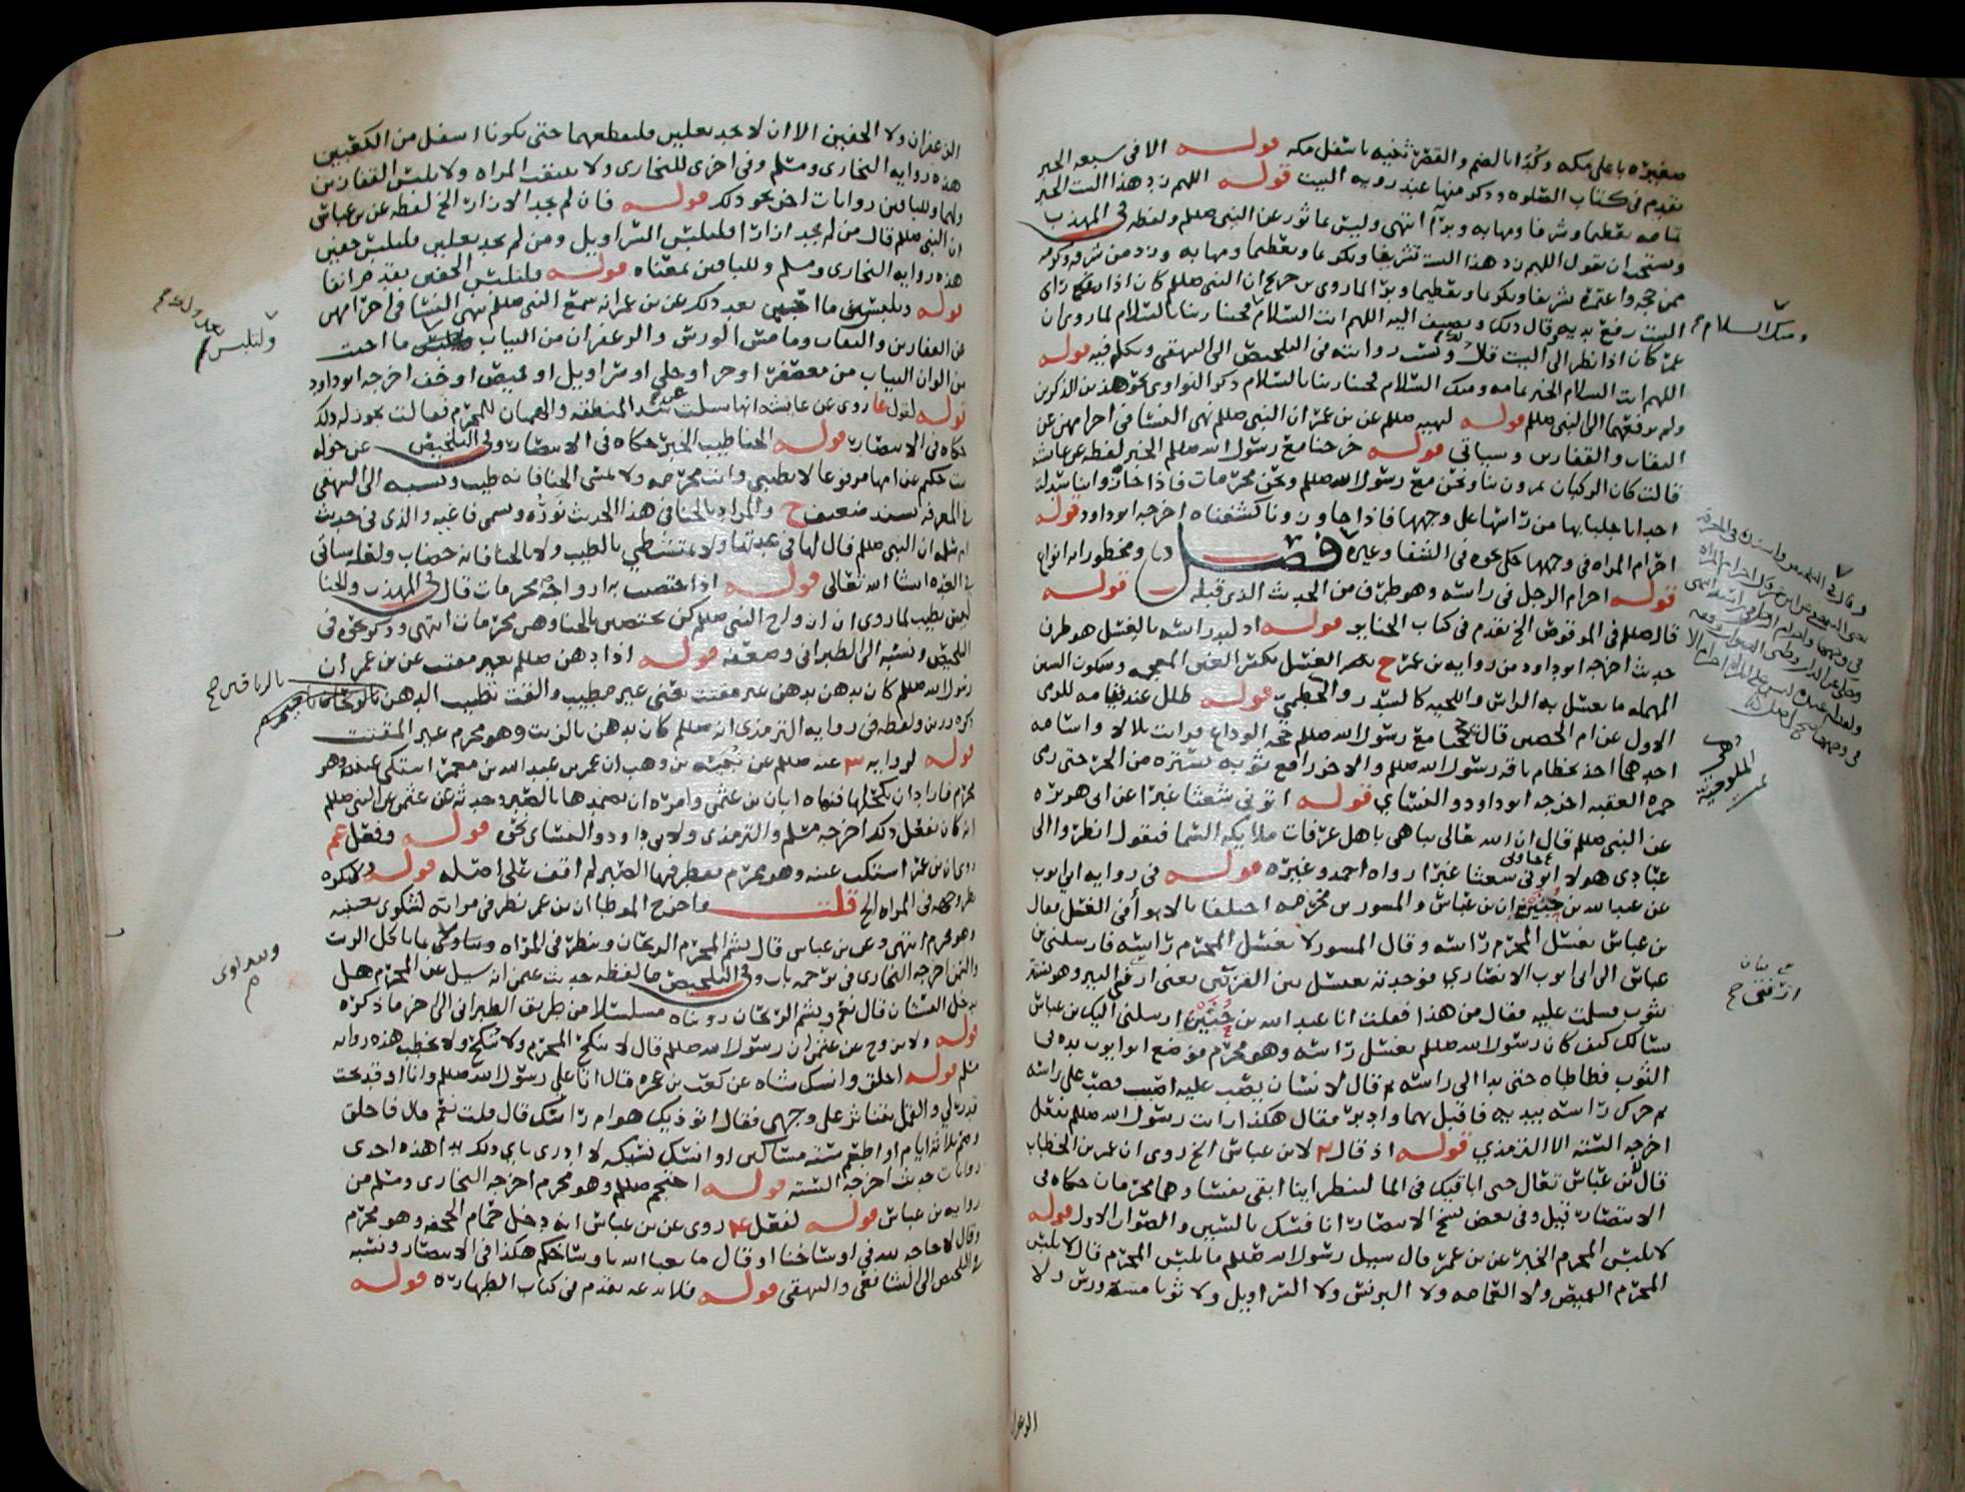 صغيره باعلى مكه وكُدَا بالضم والقصر ثنيه باسفل مكه قوله الا في سبعه الخبر
تقدم في كتاب الصلوه وذكر منها عند رويه البيت قوله اللهم زد هذا البيت الخبر
تمامه تعظيما وشرفا ومهابه وبرا انتهى وليس بماثور عن النبي صللم ولفظه في المهذب
ويستحب ان يقول اللهم زد هذا البيت تشريفا وتكريما وتعظيما ومهابه وزد من شرفه وكرمه
ممن حجه واعتمره تشريفا وتكريما وتعظيما وبرا لما روى بن جريج ان النبي صللم كان اذا راى
البيت رفع يديه وقال ذلك ويضيف اليه اللهم انت السلام فحينا ربنا بالسلام لما روى ان
عمر كان اذا نظر الى البيت قال ونسب روايته في التلخيص الى البيهقي وتكلم فيه قوله
اللهم انت السلام الخبر تمامه ومنك السلام فحينا ربنا بالسلام ذكر النواوي نحو هذين الذكرين
ولم يرفعهما الى النبي صللم قوله لنهيه صللم عن بن عمر ان النبي صللم نهى النسا في احرامهن عن
النقاب والقفازين وسياتي قوله خرجنا مع رسول الله صللم الخبر لفظه عن عايشه
قالت كان الركبان يمرون بنا ونحن مع رسول الله صللم ونحن محرمات فاذا حاذوا بنا سدلت
احدانا جلبابها من راسها على وجهها فاذا جاوزونا كشفناه اخرجه ابو داود قوله
احرام المراه في وجهها حكى نحوه في الشفا وغيره فصل ومحظوراته انواع
قوله احرام الرجل في راسه وهو طرف من الحديث الذي قبله قوله
قال صللم في الموقوص الخ تقدم في كتاب الجنايز قوله اذ لبد راسه بالغسل هو طرف
حديث اخرجه ابو داود من روايه بن عمر ح الغسل بكسر الغين المعجمه وسكون السين
المهمله ما يغسل به الراس واللحيه كالسدر والخطمي قوله ظلل عند قيامه للرمي
الاول عن ام الحصين قال حججنا مع رسول الله صللم حجه الوداع فرايت بلالا واسامه
احدهما اخذ بخطام ناقه رسول الله صللم والاخر رافع ثوبه يستره من الحر حتى رمى
جمره العقبه اخرجه ابو داود والنساي قوله اتوني شعثا غبرا عن ابي هريره
عن النبي صللم قال ان الله تعالى يباهي باهل عرفات ملايكه السما فيقول انظروا الى
عبادي هولا اتوني شعثا غبرا رواه احمد وغيره قوله في روايه ابي ايوب
عن عبدالله بن حنين ان بن عباس والمسور بن مخرمه اختلفا بالابوا في الغسل فقال
بن عباس يغسل المحرم راسه وقال المسور لا يغسل المحرم راسه فارسلني بن
عباس الى ابي ايوب الانصاري فوجدته يغتسل بين القرنين يعني قرني البير وهو يستر
بثوب فسلمت عليه فقال من هذا فقلت انا عبد الله بن حنين ارسلني اليك بن عباس
يسالك كيف كان رسول الله صللم يغسل راسه وهو محرم فوضع ابو ايوب يده في
الثوب فطاطاه حتى بدا الي راسه ثم قال لانسان يصب عليه اصبب فصب على راسه
ثم حرك راسه بيديه فاقبل بهما وادبر فقال هكذا رايت رسول الله صللم يفعل
اخرجه السته الا الترمذي قوله اذ قال لابن عباس الخ روى ان عمر بن الخطاب
قال لابن عباس تعال حتى اباقيك في الما لننظر اينا ابقى نفسا وهما محرمان حكاه في
الانتصار قيل وفي بعض نسخ الانتصار انافسك بالسين والصواب الاول قوله
لا يلبس المحرم الخبر عن بن عمر قال سيل رسول الله صللم ما يلبس المحرم قال لا يلبس
المحرم القميص ولا العمامه ولا البرنس ولا السراويل ولا ثوبا مسه ورس ولا
ومنك السلام
الزعفران
الزعفران ولا الخفين الا ان لا يجد نعلين فليقطعهما حتى يكونا اسفل من الكعبين
هذه روايه البخاري ومسلم وفي اخرى للبخاري ولا تنتقب المراه ولا تلبس القفازين
ولهما وللباقين روايات اخر نحو ذلك قوله فان لم يجد الازار الخ لفظه عن بن عباس
ان النبي صللم قال من لم يجد ازارا فليلبس السراويل ومن لم يجد نعلين فليلبس خفين
هذه روايه البخاري ومسلم وللباقين بمعناه قوله فليلبس الخفين تقدم انفا
قوله ويلبس ما احببن بعد ذلك عن بن عمر انه سمع النبي صللم ينهى النسا في احرامهن
عن القفازين والنقاب وما مس الورس والزعفران من الثياب وليلبس ما احبت
من الوان الثياب من معصفر او خز او حلي او سراويل او قميص او خف اخرجه ابو داود
قوله لقول عا روى عن عايشه انها سيلت عن شد المنطقه والهميان للمحرم فقالت يجوز له ذلك
حكاه في الانتصار قوله الحنا طيب الخبر حكاه في الانتصار وفي التلخيص عن خوله
بنت حكيم عن امها مرفوعا لا تطيبي وانت محرمه ولا تمسي الحنا فانه طيب ونسبه الى البيهقي
في المعرفه بسند ضعيف ح والمراد بالحنا في هذا الحديث نَوْرُه وسمي فاغيه والذي في حديث
ام سلمه ان النبي صللم قال لها في عدتها ولا تمتشطي بالطيب ولا بالحنا فانه خضاب ولفظه ياتي
في العده انشا الله تعالى قوله اذ اختضب به ازواجه محرمات قال في المهذب والحنا
ليس بطيب لما روى ان ازواج النبي صللم كن يختضبن بالحنا وهن محرمات انتهى وذكر نحوه في
التلخيص ونسبه الى الطبراني وضعفه قوله اذ ادهن صللم بغير مقتت عن بن عمر ان
رسول الله صللم كان يدهن بدهن غير مقتت يعني غير مطيب والقت تطييب الدهن بالريحان
ذكره رزين ولفظه في روايه الترمذي انه صللم كان يدهن بالزيت وهو محرم غير المقتت
قوله لروايه عنه صللم عن نُبَيْه بن وهب ان عمر بن عبد الله بن معمر اشتكى عينه وهو
محرم فاراد ان يكحلها فنهاه ابان بن عثمن وامره ان يضمدها بالصبر وحدثه عن عثمن عن النبي صللم
انه كان يفعل ذلك اخرجه مسلم والترمذي ولابي داود والنساي نحوه قوله وفعل عم
روى ان بن عمر اشتكت عينه وهو محرم فقطر فيها الصبر لم اقف على اصله قوله ولا يكره
نظر وجهه في المراه الخ قلت واخرج الموطا ان بن عمر نظر في مراته لشكوى بعينيه
وهو محرم انتهى وعن بن عباس قال يشم المحرم الريحان وينظر في المراه ويتداوى بما ياكل الزيت
والسمن اخرجه البخاري في ترجمه باب وفي التلخيص ما لفظه حديث عثمن انه سيل عن المحرم هل
يدخل البستان قال نعم ويشم الريحان رويناه مسلسلا من طريق الطبراني الى اخر ما ذكره
قوله ولا يزوج عن عثمن ان رسول الله صللم قال لا ينكح المحرم ولا يُنكح ولا يخطب هذه روايه
مسلم قوله احلق وانسك شاه عن كعب بن عجره قال اتا علي رسول الله صللم وانا اوقد تحت
قدر لي والقمل يتناثر على وجهي فقال اتوذيك هوام راسك قال قلت نعم قال فاحلق
وصم ثلاثه ايام او اطعم سته مساكين او انسك نسيكه لا ادري باي ذلك بدا هذه احدى
روايات حديث اخرجه السته قوله احتجم صللم وهو محرم اخرجه البخاري ومسلم من
روايه بن عباس قوله لفعل ع روى عن بن عباس انه دخل حمام الجحفه وهو محرم
وقال لا حاجه لله في اوساخنا او قال ما يعبا الله باوساخكم هكذا في الانتصار ونسبه
في التلخيص الى الشافعي والبيهقي قوله فلا بدعه تقدم في كتاب الطهاره قوله